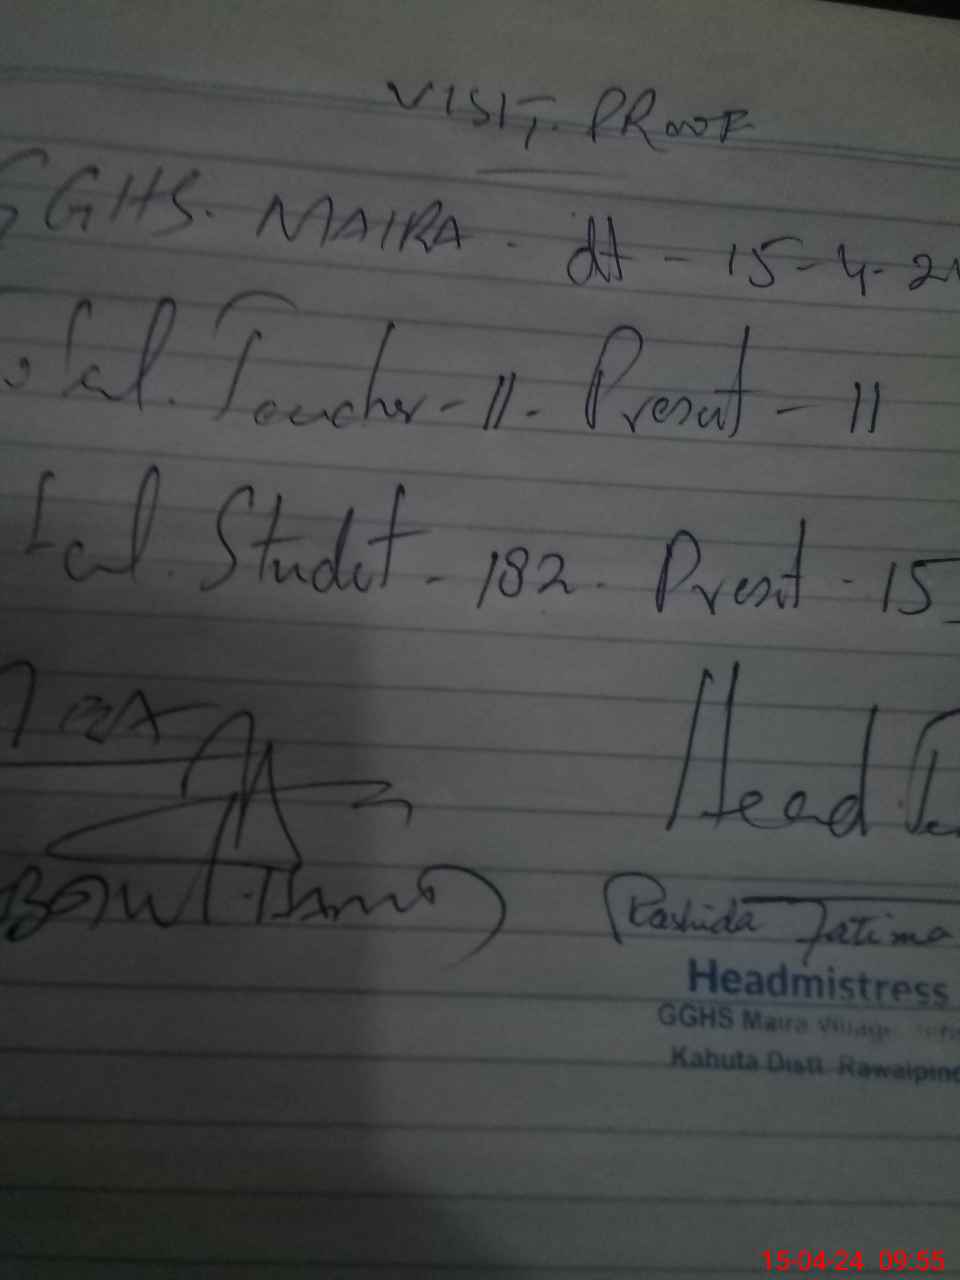 VISIT. PROOF
GGHS. MAIRA. dt - 15-4-2
Teacher - 11. Present - 11
Studet - 182. Presnt - 15
Head
Rashida Fatima
Headmistress
GGHS Maira Village
Kahuta Distt. Rawalpind
15-04-24 09:55